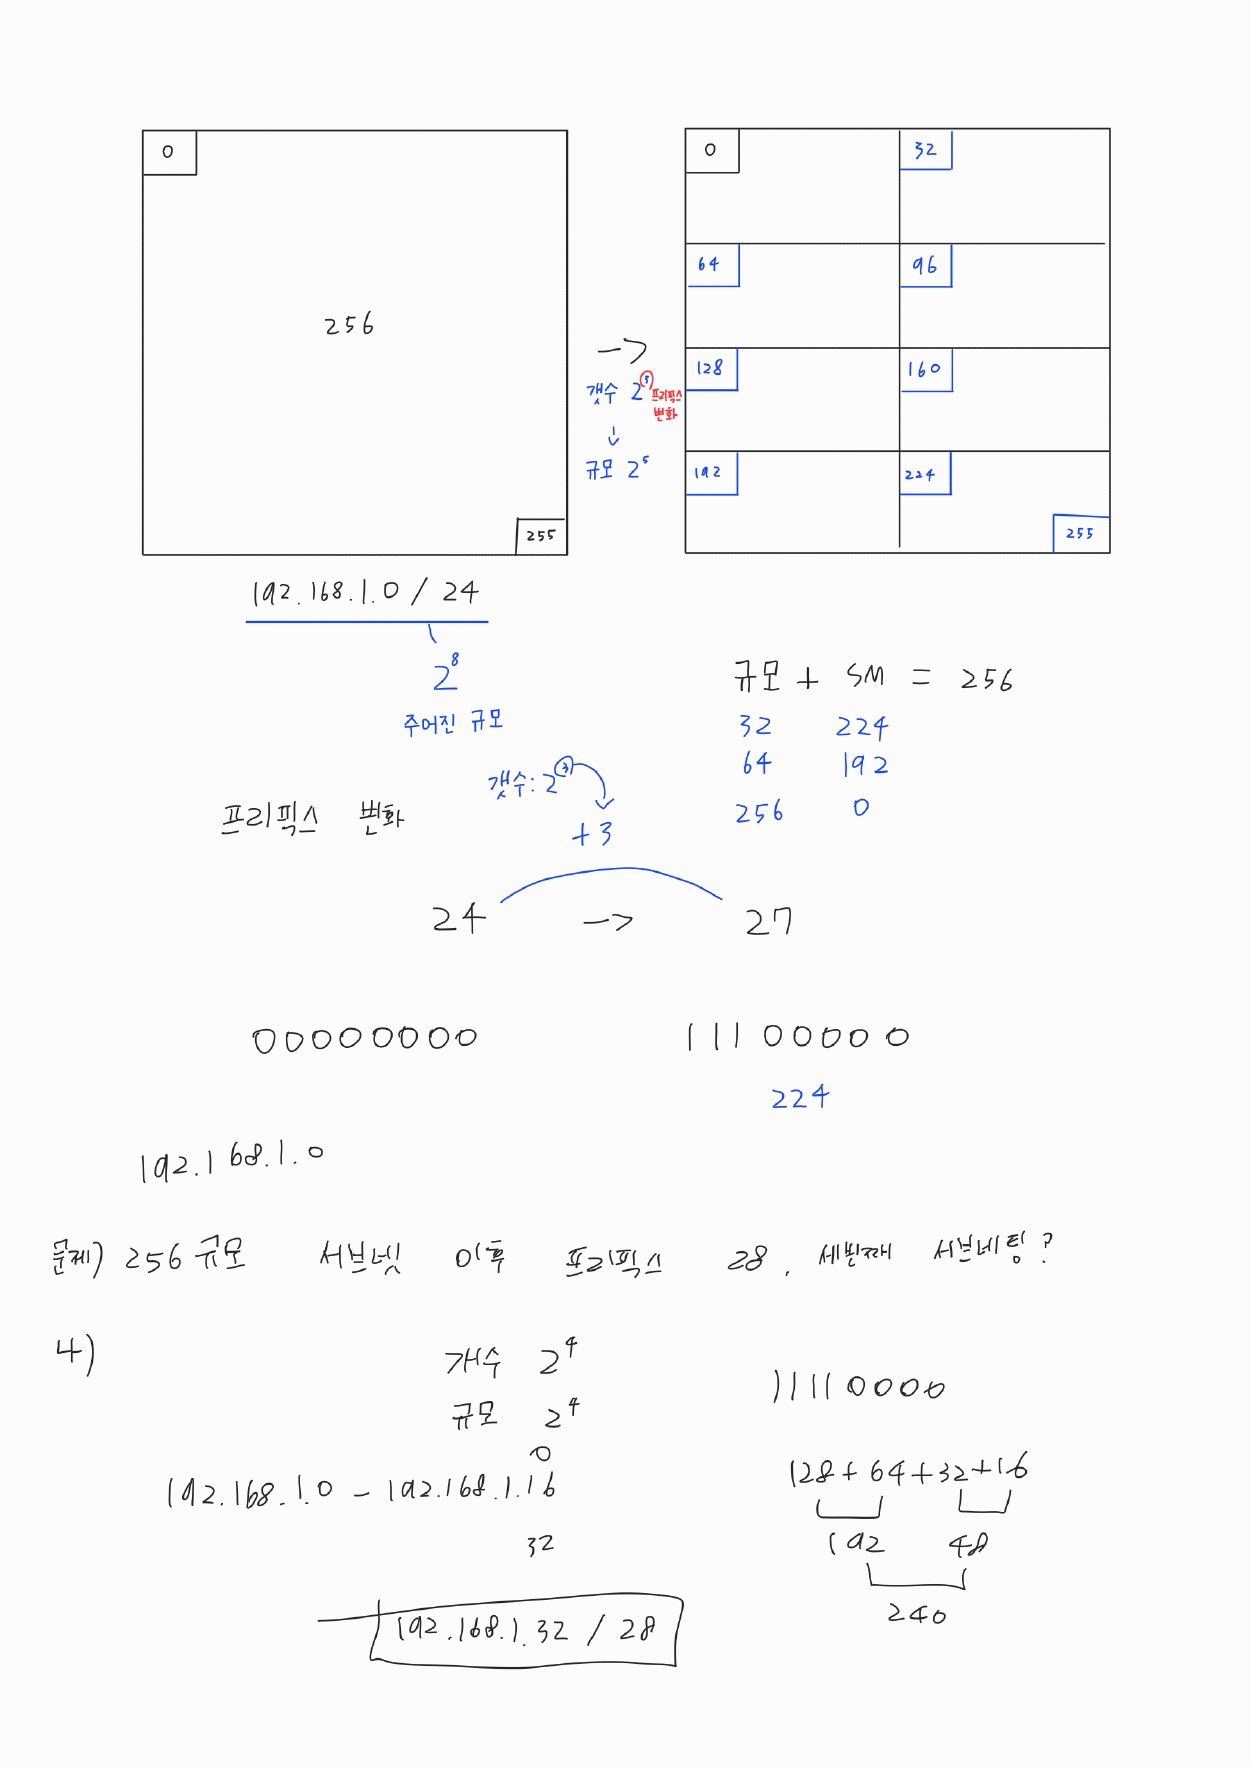 0
256
255
192.168.1.0 / 24
2^8
주어진 규모
->
갯수 2^3 프리픽스 변화
↓
규모 2^5
0 32
64 96
128 160
192 224
255
규모 + SM = 256
32 224
64 192
256 0
갯수: 2^3
+3
프리픽스 변화
24 -> 27
00000000 11100000
224
192.168.1.0
문제) 256 규모 서브넷 이후 프리픽스 28. 세번째 서브네팅?
4)
개수 2^4
규모 2^4
0
192.168.1.0 - 192.168.1.16
32
192.168.1.32 / 28
11110000
128+64+32+16
192 48
240